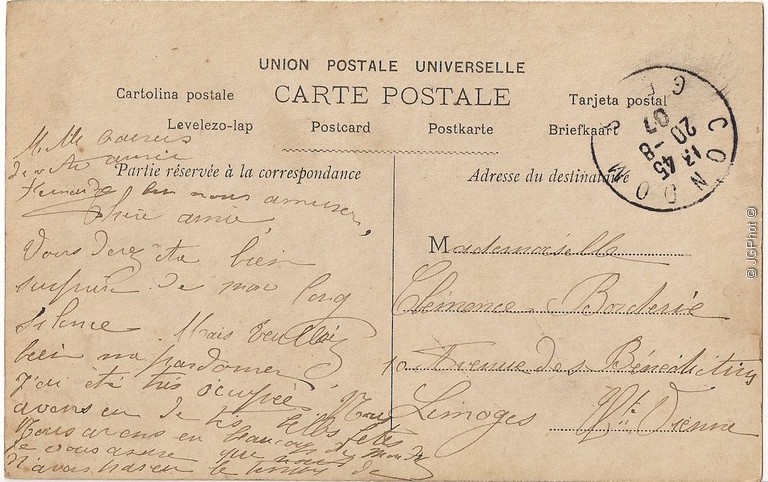 UNION POSTALE UNIVERSELLE
Cartolina postale CARTE POSTALE Tarjeta postal
Levelezo-lap Postcard Postkarte Briefkaart
CONDOM
GERS
13 45
20 -8
07
Partie réservée à la correspondance
Adresse du destinataire
baisers
de votre amie
Fernande
bien nous amuser,
Chère amie
Vous devez être bien
surprise de mon long
silence Mais veuillez
bien me pardonner
J'ai été très occupée. Nous
avons eu de très belles fêtes
Nous avons eu beaucoup de monde
Je vous assure que nous
n'avons pas eu le temps de
Mademoiselle
Clémence Borderie
10 Avenue des Bénédictins
Limoges Hte Vienne
© JGPhot ©